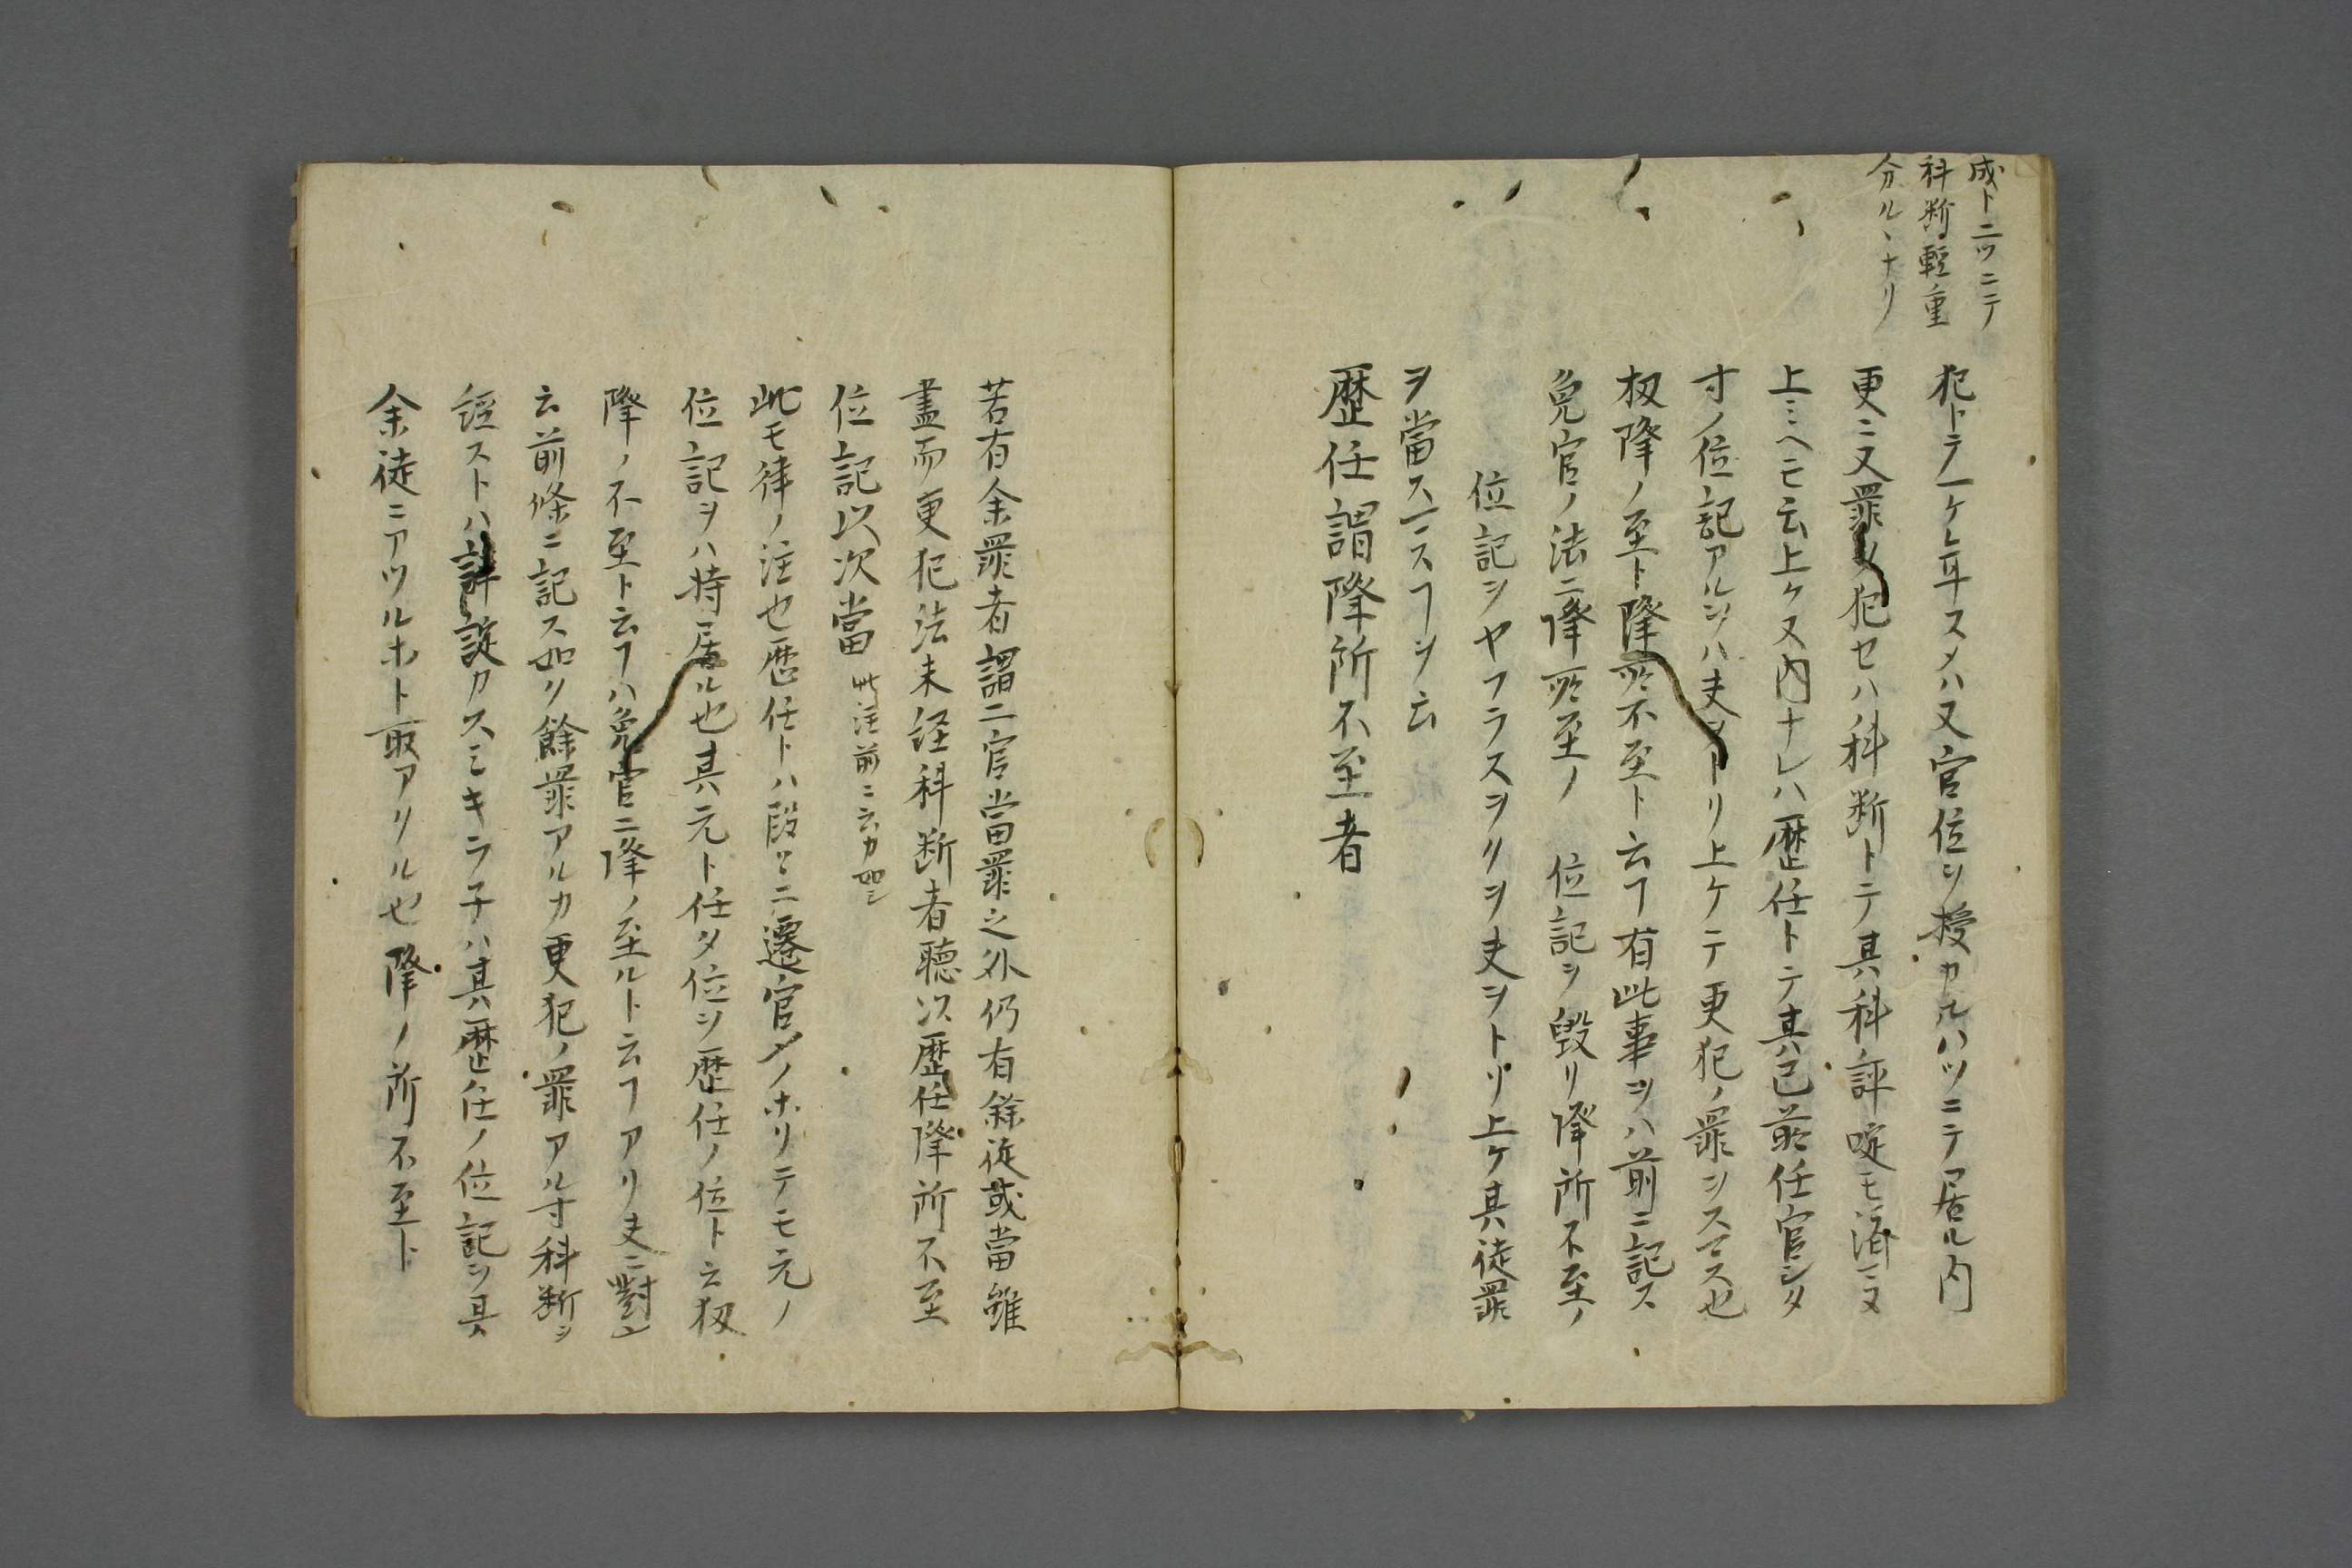 成トニツニテ
科断軽重
分ルヽナリ
犯トテ一ケ年スメハ又官位ヲ授カルハツニテ居ル内
更ニ又罪ヲ犯セハ科断トテ其科ノ評定モ済マヌ
上ミヘモ云上ケヌ内ナレハ歴任トテ其已前任官シタ
寸ノ位記アルヲハ夫ヲトリ上ケテ更犯ノ罪ヲスマス也
扨降ノ至ト降所不至ト云フ有此事ヲハ前ニ記ス
免官ノ法ニ降所至ノ 位記ヲ毀リ降所不至ノ
位記ヲヤフラスヲリヲ夫ヲトリ上ケ其徒罪
ヲ當スマスフヲ云
歴任謂降所不至者
若有余罪者謂二官當罪之外仍有餘徒或當雖
盡而更犯法未経科断者聴以歴任降所不至
位記以次當 此注前ニ云カ如シ
此モ律ノ注也歴任トハ段々ニ遷官ノホリテモ元ノ
位記ヲハ持居ル也其元ト任タ位ヲ歴任ノ位ト云扨
降ノ不至ト云フハ免官ニ降ノ至ルト云フアリ夫ニ對シ
云前條ニ記ス如リ餘罪アルカ更犯ノ罪アル寸科断ヲ
経ストハ評定カスミキラ子ハ其歴任ノ位記ヲ其
余徒ニアツルホト取アリル也降ノ所不至ト